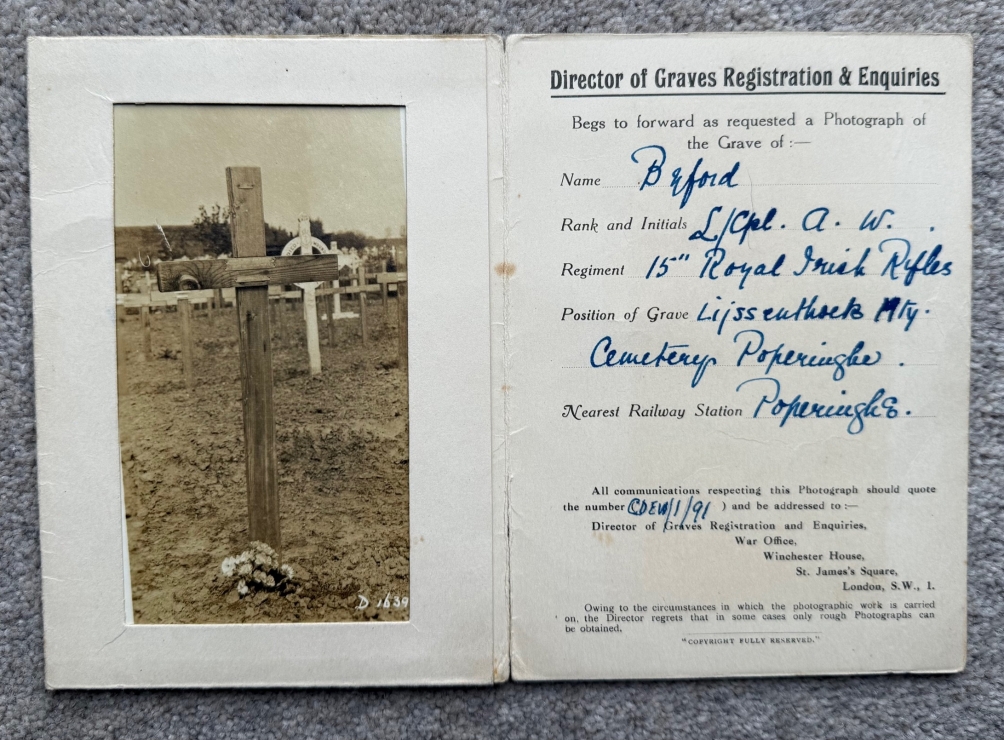 D 1639
Director of Graves Registration & Enquiries
Begs to forward as requested a Photograph of
the Grave of :—
Name Byford
Rank and Initials L/Cpl. A. W.
Regiment 15" Royal Irish Rifles
Position of Grave Lijssenthoek Mty.
Cemetery Poperinghe .
Nearest Railway Station Poperinghe.
All communications respecting this Photograph should quote
the number CDEW/1/91 ) and be addressed to :—
Director of Graves Registration and Enquiries,
War Office,
Winchester House,
St. James's Square,
London, S.W., 1.
Owing to the circumstances in which the photographic work is carried
on, the Director regrets that in some cases only rough Photographs can
be obtained.
"COPYRIGHT FULLY RESERVED."